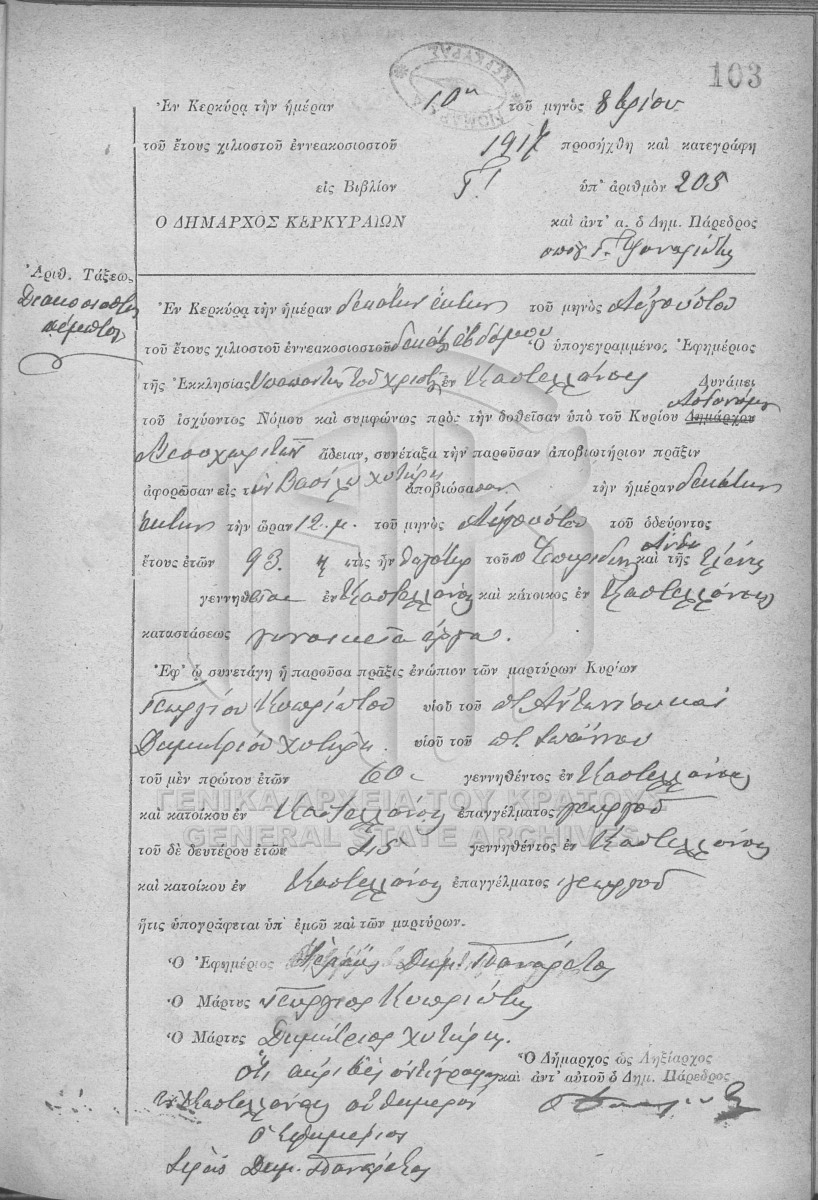 103
ΚΕΡΚΥΡΑΣ
Ἐν Κερκύρᾳ τὴν ἡμέραν 10ην τοῦ μηνὸς 8βρίου
τοῦ ἔτους χιλιοστοῦ ἐννεακοσιοστοῦ 1917 προσήχθη καὶ κατεγράφη
εἰς Βιβλίον Γ' ὑπ' ἀριθμὸν 205
Ο ΔΗΜΑΡΧΟΣ ΚΕΡΚΥΡΑΙΩΝ καὶ ἀντ' α. ὁ Δημ. Πάρεδρος
Ἀριθ. Τάξεως
Διακοσιοστὴ
πέμπτη
Ἐν Κερκύρᾳ τὴν ἡμέραν δεκάτην ἕκτην τοῦ μηνὸς Αὐγούστου
τοῦ ἔτους χιλιοστοῦ ἐννεακοσιοστοῦ δεκάτου ἑβδόμου Ὁ ὑπογεγραμμένος Ἐφημέριος
τῆς Ἐκκλησίας Ὑπαπαντῆς τοῦ Χριστοῦ ἐν Καστελλάνοις Δυνάμει
τοῦ ἰσχύοντος Νόμου καὶ συμφώνως πρὸς τὴν δοθεῖσαν ὑπὸ τοῦ Κυρίου Δημάρχου Ἀστυνόμου
Μεσοχωριτῶν ἄδειαν, συνέταξα τὴν παροῦσαν ἀποβιωτήριον πρᾶξιν
ἀφορῶσαν εἰς τὴν Βασίλω Χυτήρη ἀποβιώσασαν τὴν ἡμέραν δεκάτην
ἕκτην τὴν ὥραν 12. μ. τοῦ μηνὸς Αὐγούστου τοῦ ὁδεύοντος
ἔτους ἐτῶν 93. ἥτις ἦν θυγάτηρ τοῦ π. Σπυρίδωνος καὶ τῆς
γεννηθεῖσα ἐν Καστελλάνοις καὶ κάτοικος ἐν Καστελλάνοις
καταστάσεως γυναικεῖα ἔργα.
Ἐφ' ᾧ συνετάγη ἡ παροῦσα πρᾶξις ἐνώπιον τῶν μαρτύρων Κυρίων
Γεωργίου Κυπριώτου υἱοῦ τοῦ π. Ἀντωνίου καὶ
Δημητρίου Χυτήρη υἱοῦ τοῦ π. Ἰωάννου
τοῦ μὲν πρώτου ἐτῶν 60 γεννηθέντος ἐν Καστελλάνοις
καὶ κατοίκου ἐν Καστελλάνοις ἐπαγγέλματος γεωργοῦ
ΓΕΝΙΚΑ ΑΡΧΕΙΑ ΤΟΥ ΚΡΑΤΟΥΣ
GENERAL STATE ARCHIVES
τοῦ δὲ δευτέρου ἐτῶν 45 γεννηθέντος ἐν Καστελλάνοις
καὶ κατοίκου ἐν Καστελλάνοις ἐπαγγέλματος γεωργοῦ
ἥτις ὑπογράφεται ὑπ' ἐμοῦ καὶ τῶν μαρτύρων.
Ὁ Ἐφημέριος Ἱερεὺς Δημ. Πανάρετος
Ὁ Μάρτυς Γεώργιος Κυπριώτης
Ὁ Μάρτυς Δημήτριος Χυτήρης
Ὅτι ἀκριβὲς ἀντίγραφον
Ὁ Δήμαρχος ὡς Ληξίαρχος
καὶ ἀντ' αὐτοῦ ὁ Δημ. Πάρεδρος
Ἐν Καστελλάνοις αὐθημερόν
ὁ Ἐφημέριος
Ἱερεὺς Δημ. Πανάρετος